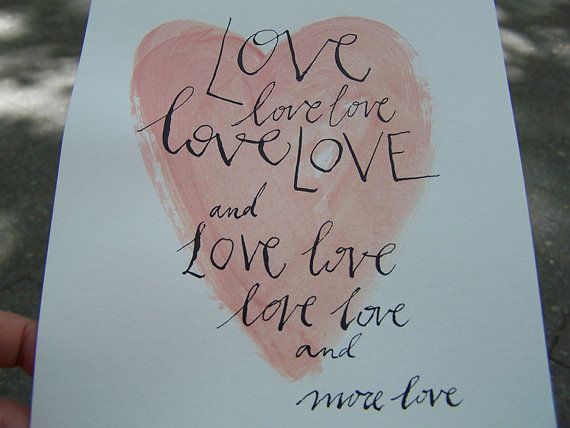 LOVE
love love
love LOVE
and
LOVE love
love love
and
more love